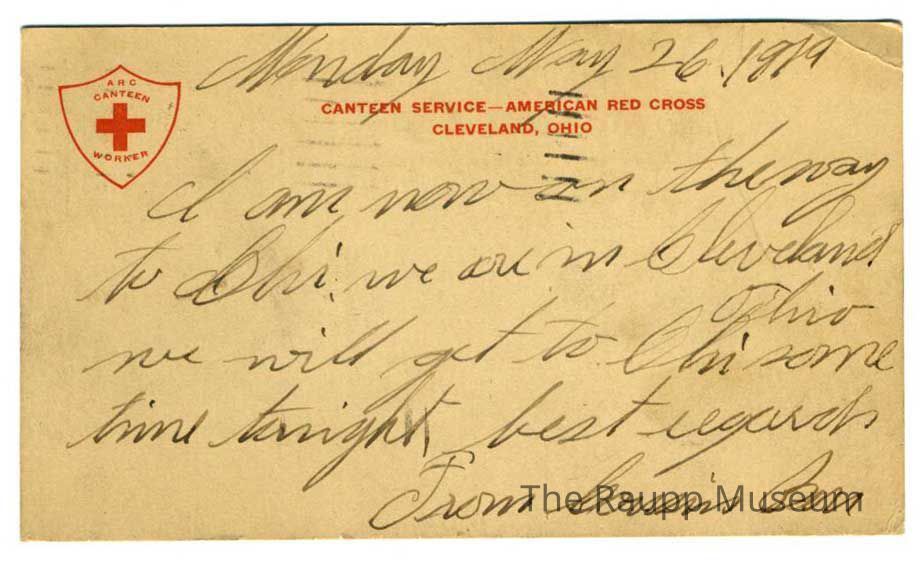 Monday May 26. 1919
A R C
CANTEEN
WORKER
CANTEEN SERVICE—AMERICAN RED CROSS
CLEVELAND, OHIO
I am now on the way
to Chi. we are in Cleveland
Ohio
we will get to Chi some
time tonight best regards
From
The Raupp Museum